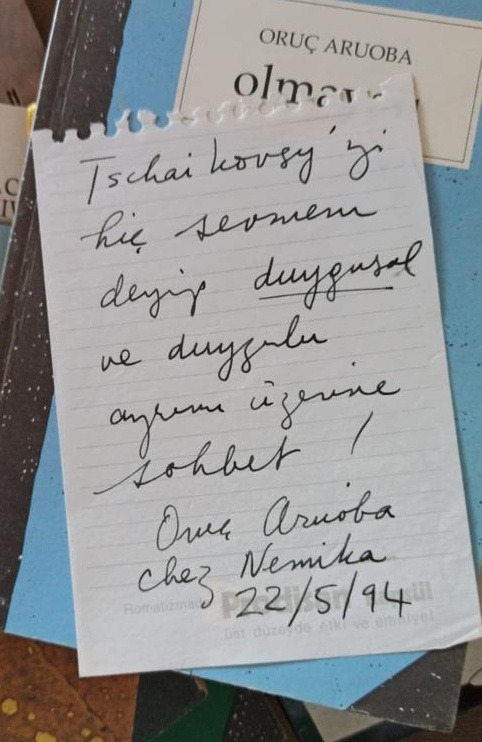 ORUÇ ARUOBA
Tschaikovsy'yi
hiç sevmem
deyip duygusal
ve duygulu
ayrımı üzerine
sohbet !
Oruç Aruoba
chez Nemika
22/5/94
Romatizmada
üst düzeyde etki ve emniyet